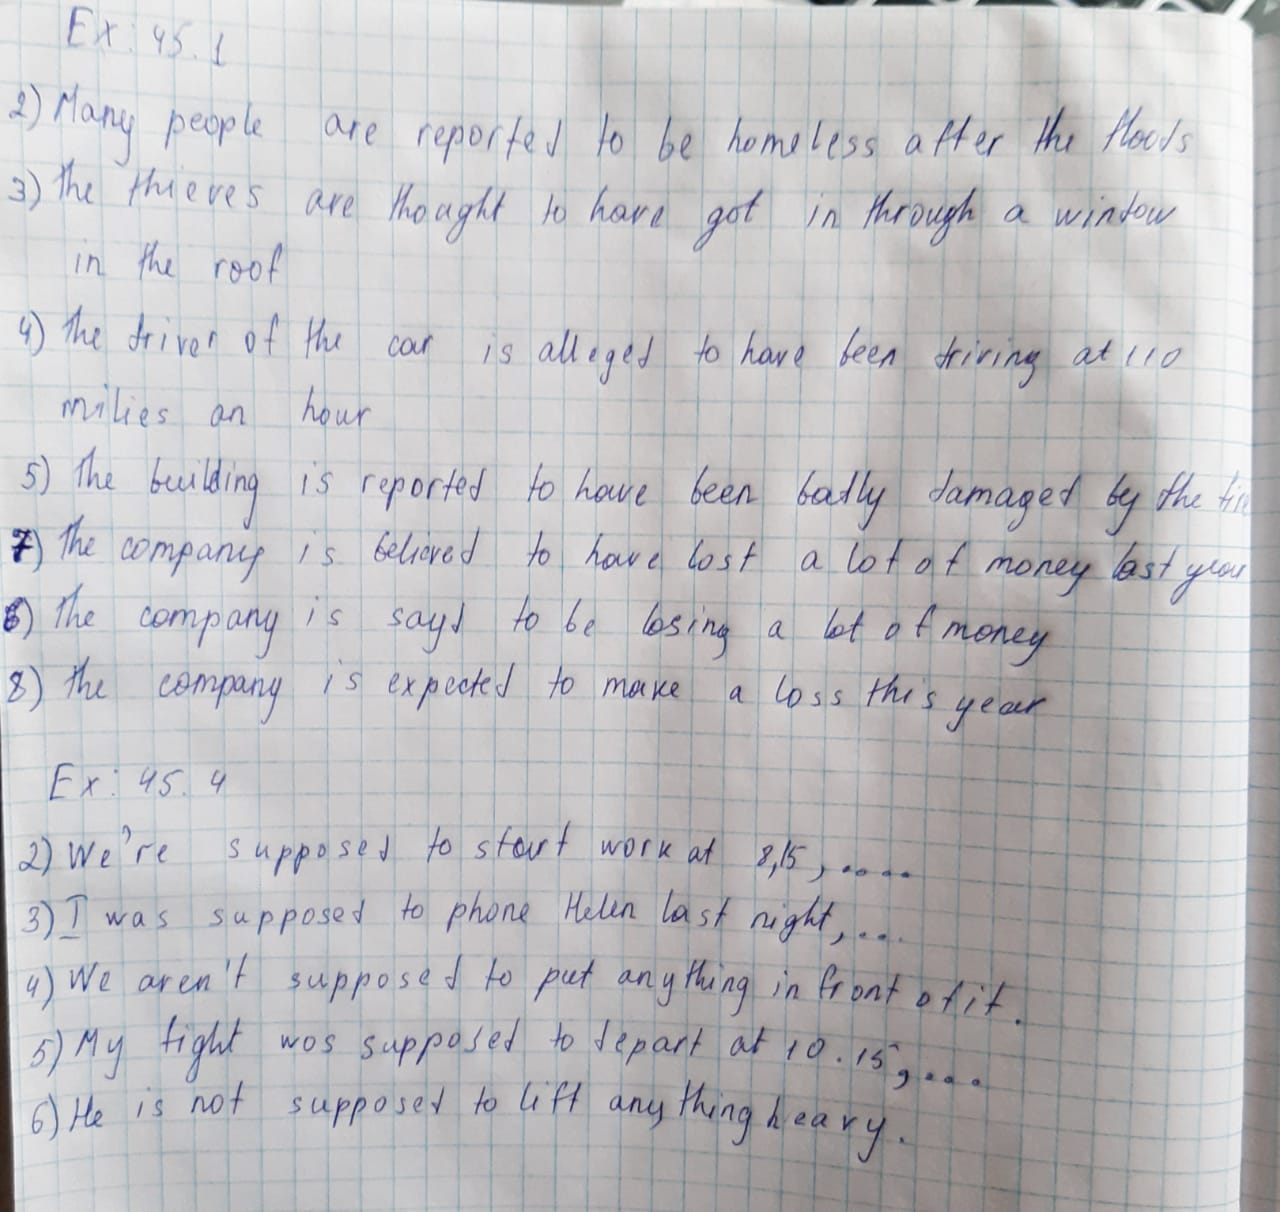 Ex: 45.1
2) Many people are reported to be homeless after the floods
3) The thieves are thought to have got in through a window
in the roof
4) The driver of the car is alleged to have been driving at 110
milies an hour
5) The building is reported to have been badly damaged by the fire
7) The company is believed to have lost a lot of money last year
6) The company is sayd to be losing a lot of money
8) The company is expected to make a loss this year
Ex: 45.4
2) We're supposed to start work at 8,15, .....
3) I was supposed to phone Helen last night, ...
4) We aren't supposed to put anything in front of it.
5) My fight was supposed to depart at 10.15, ...
6) He is not supposed to lift anything heavy.